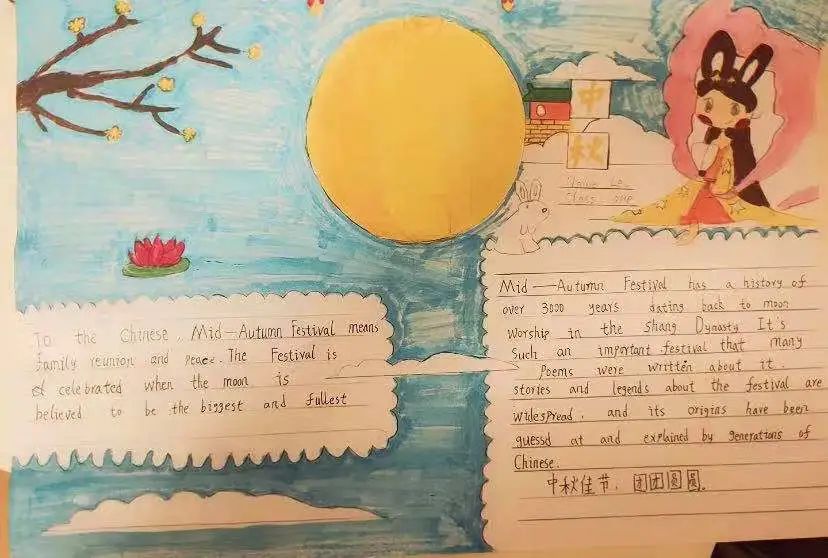 中
秋
Class
To the Chinese, Mid-Autumn Festival means
family reunion and peace. The Festival is
celebrated when the moon is
believed to be the biggest and fullest
Mid—Autumn Festival has a history of
over 3000 years dating back to moon
Worship in the Shang Dynasty It's
Such an important festival that many
Poems were written about it.
stories and legends about the festival are
widespread. and its origins have been
guessd at and explained by generations of
Chinese.
中秋佳节，团团圆圆.